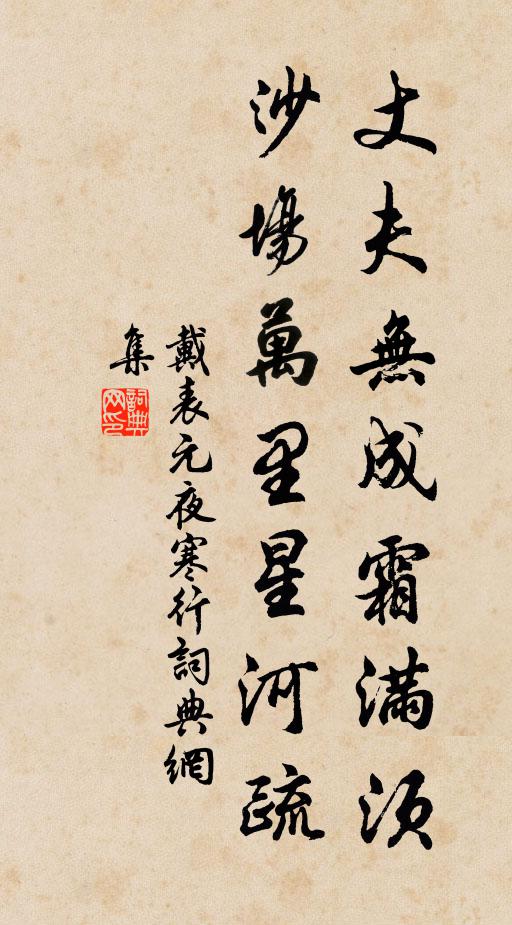 丈夫無成霜滿須
沙場萬里星河疏
戴表元夜寒行詞典網
集
詞典
网印